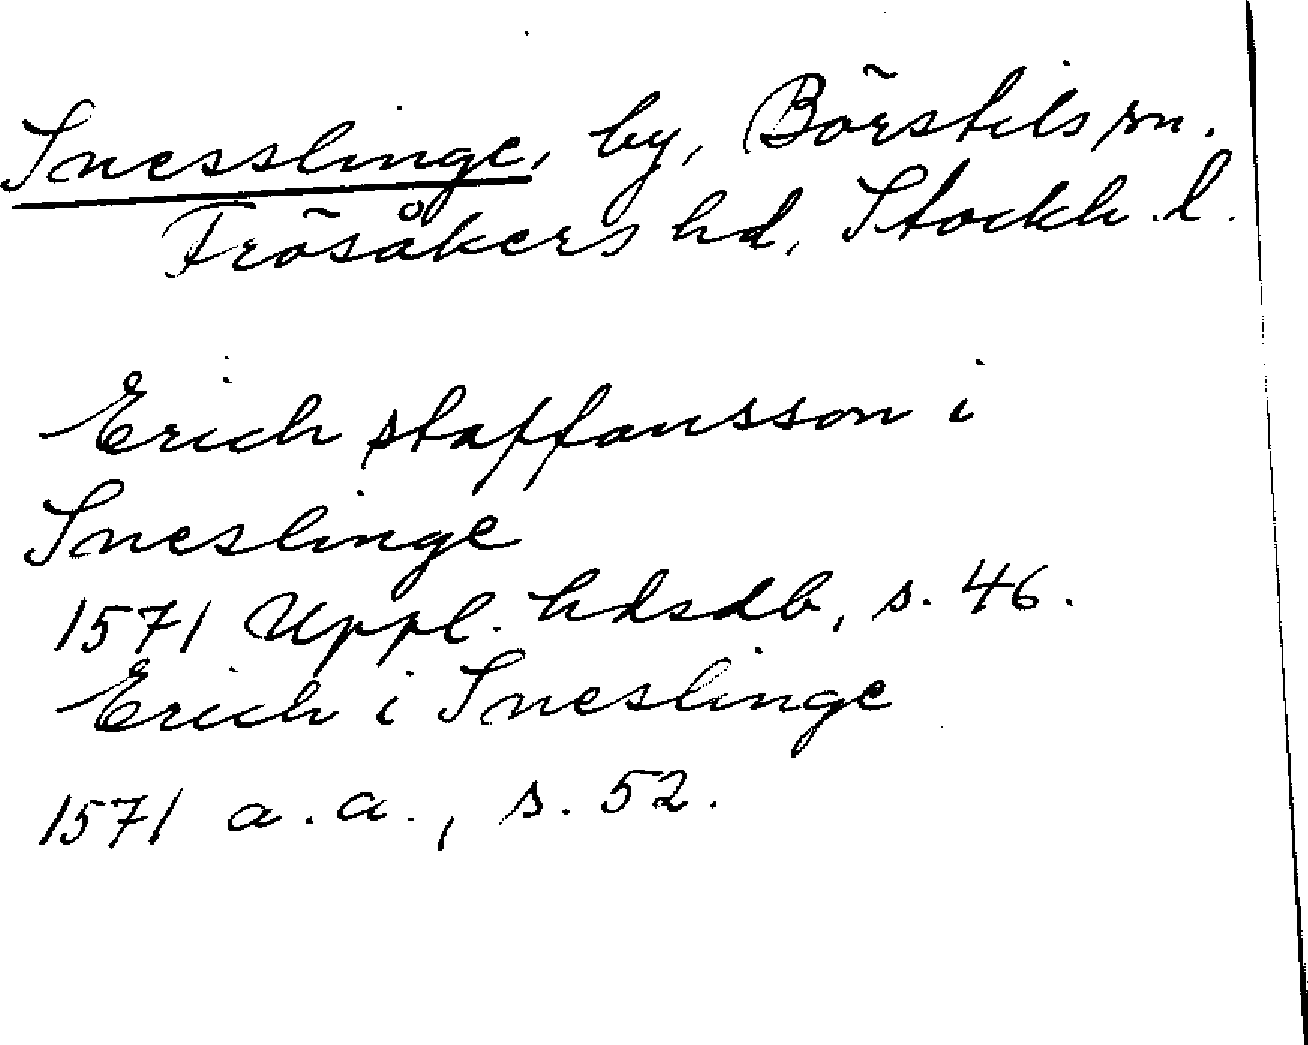 Snesslinge, by, Börstils sn.
Frösåkers hd, Stockh. l.
Erich staffansson i
Sneslinge
1571 Uppl. hdsdb, s. 46.
Erich i Sneslinge
1571 a. a., s. 52.